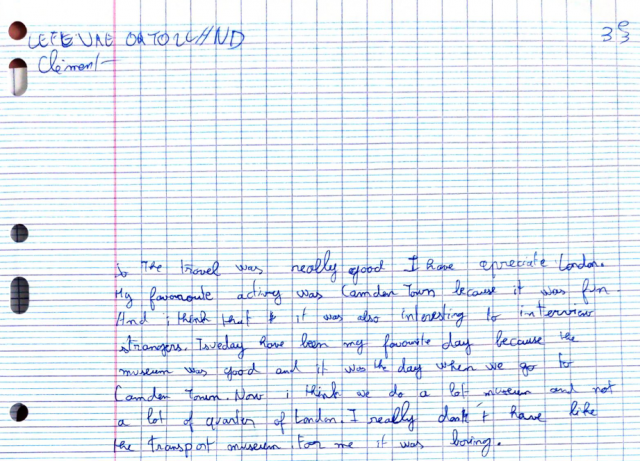 LEFEUVRE ORTOLAND
Clément
3e3
The travel was really good I have apreciate London.
My favouroute activy was Camden Town because it was fun.
And i think that it was also interesting to interview
strangers. Tsueday have been my favourite day because the
museum was good and it was the day when we go to
Camden Town. Now i think we do a lot museum and not
a lot of quarter of London. I really dont't have like
the transport museum. For me it was boring.